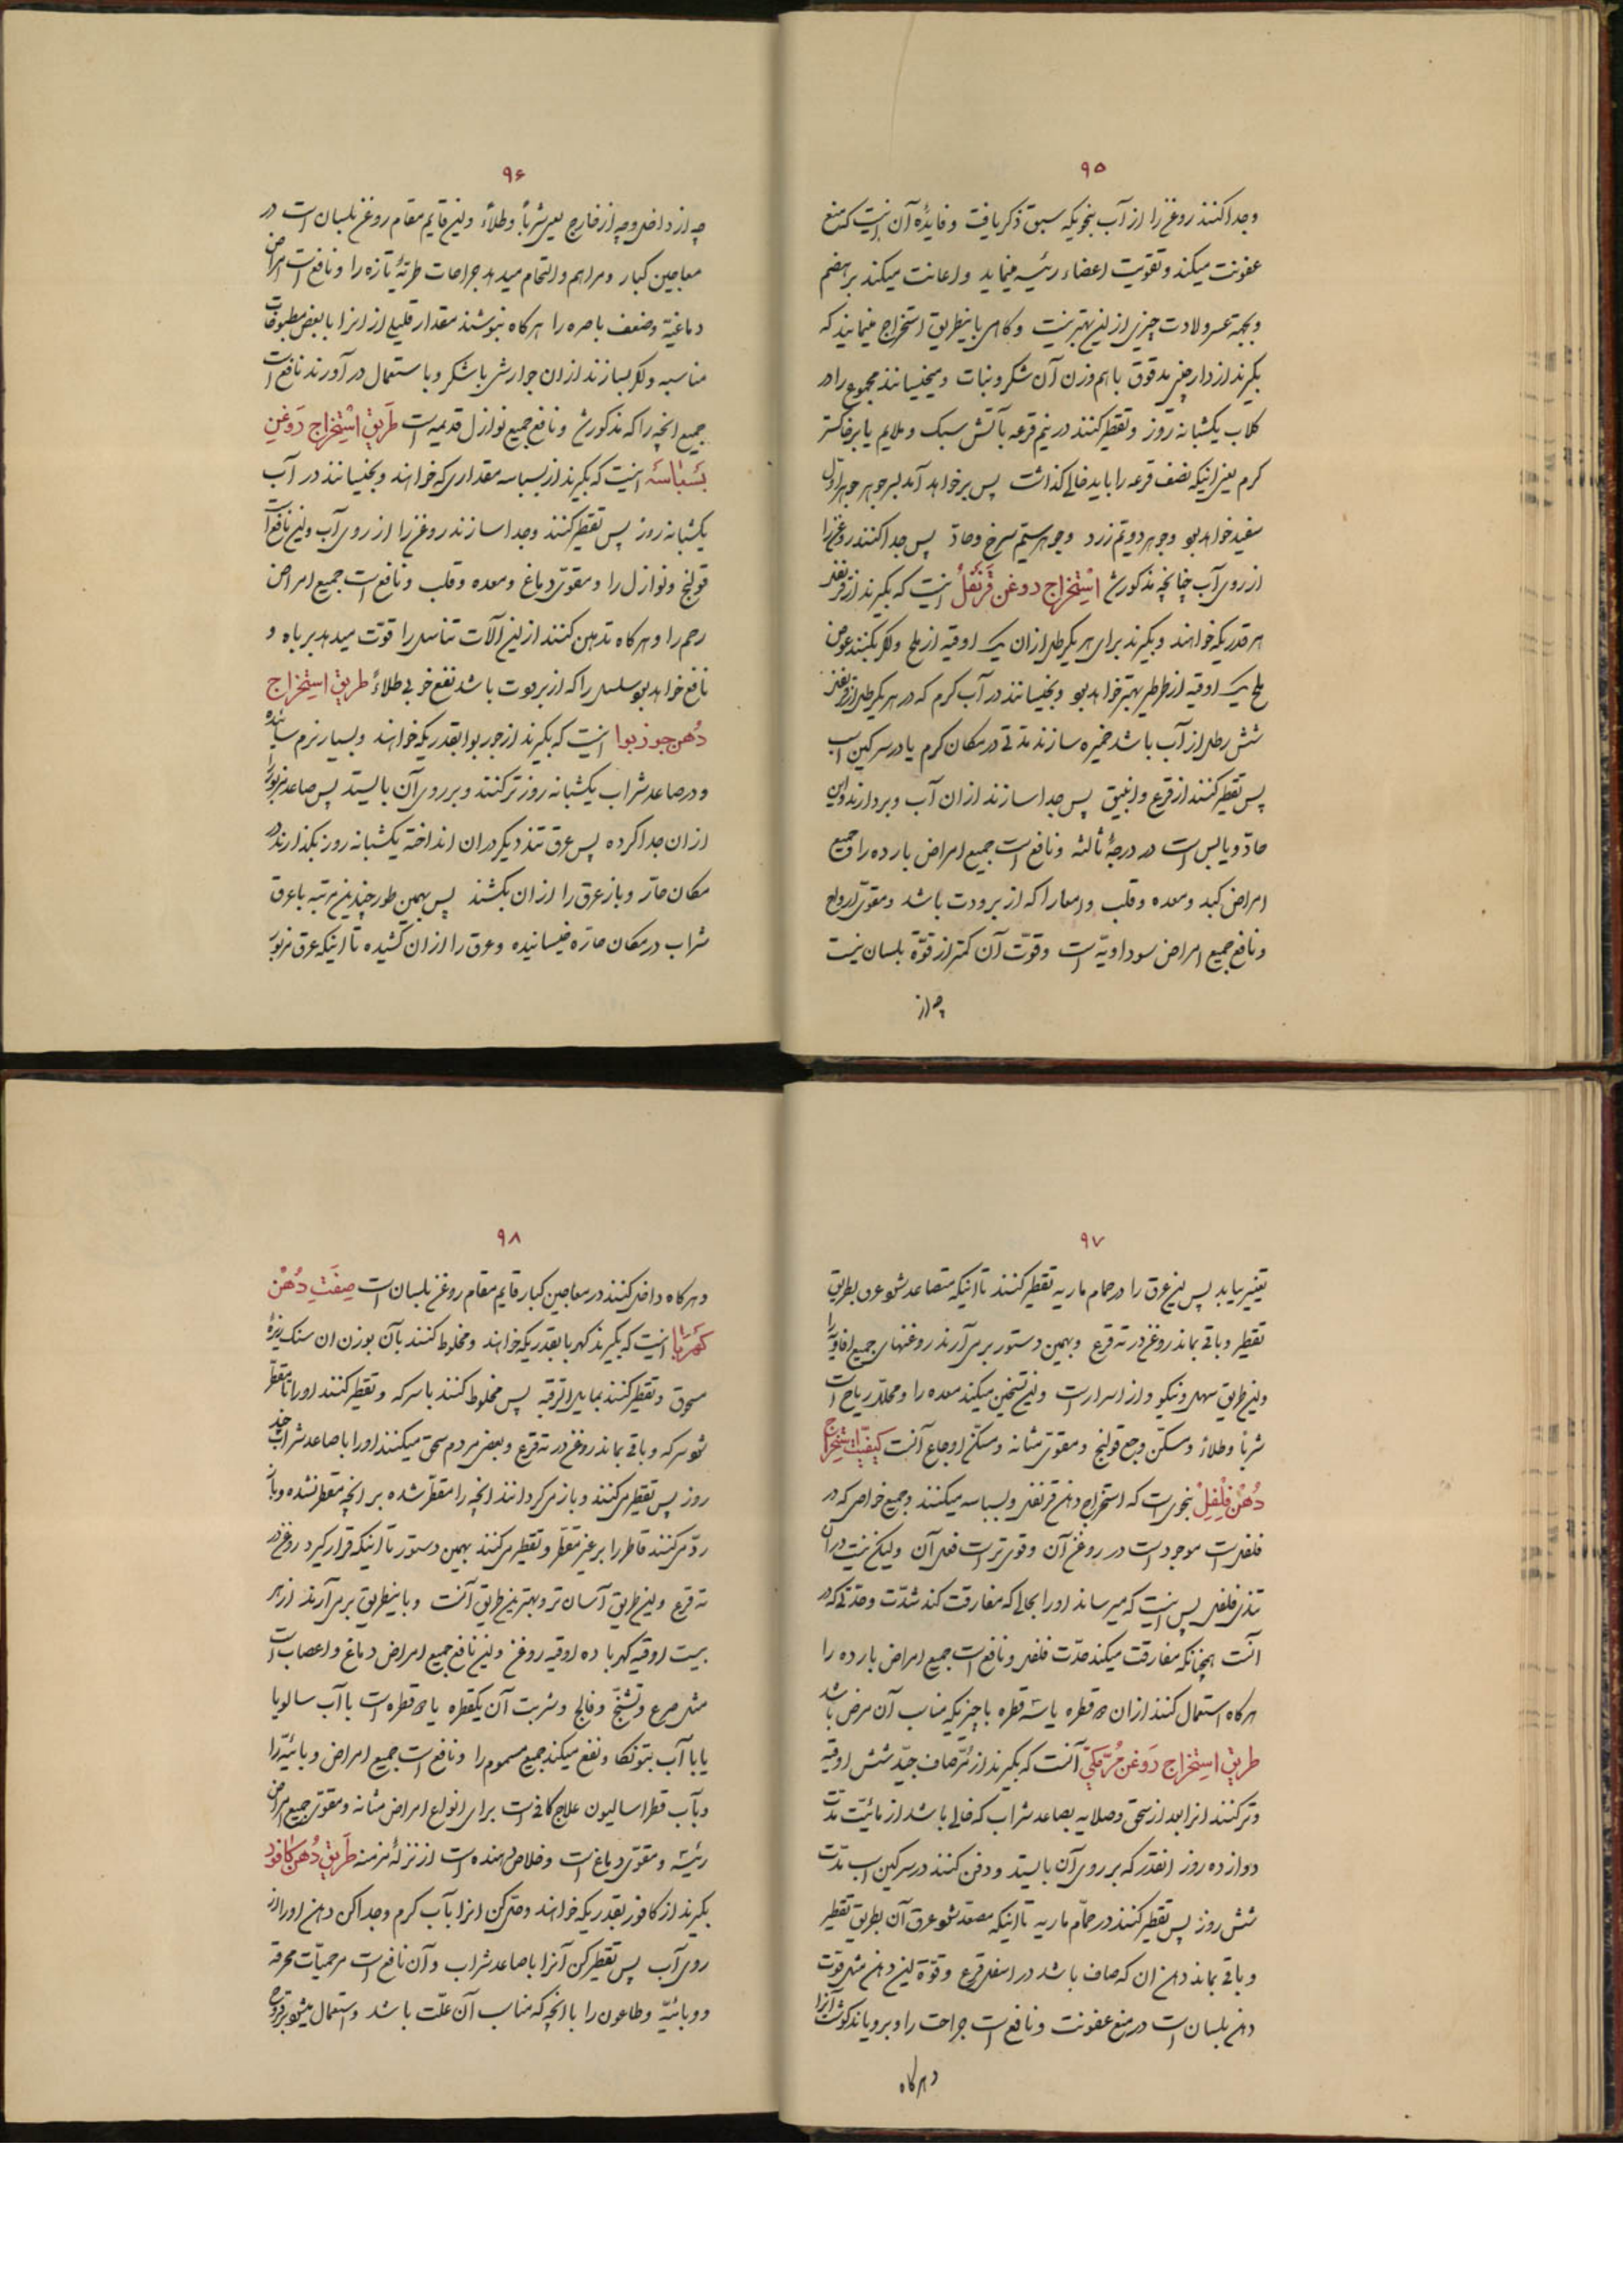 ۹۵
وجدا کنند روغن را از آب بنحویکه سبق ذکر یافت وفایدهٔ آن اینست که منع
عفونت میکند وتقویت اعضاء رئیسه مینماید واعانت میکند بر هضم
وبجهة عسر ولادت چیزی از این بهتر نیست وکاهی باینطریق استخراج مینمایند که
بکیرند از دارچینی مدقوق باهم وزن آن شکر ونبات ومیخیسانند مجموع را در
کلاب یکشبانه روز وتقطیر کنند در نیم قرعه بآتش سبک وملایم یا بر خاکستر
کرم یعنی اینکه نصف قرعه را باید خالی کذاشت پس بر خواهد آمد سه جوهر جوهر اول
سفید خواهد بود وجوهر دویم زرد وجوهر سیم سرخ وحاد پس جدا کنند روغن را
از روی آب چنانچه مذکور شد استخراج روغن قرنفل اینست که بکیرند از قرنفل
هر قدریکه خواهند وبکیرند برای هر یکرطل از ان یک اوقیه از ملح واکر بکنند عوض
ملح یک اوقیه از طرطیر بهتر خواهد بود وبخیسانند در آب کرم که در هر یکرطل از قرنفل
شش رطل از آب باشد خمیره سازند مدتی در مکان کرم یا در سرکین اسب
پس تقطیر کنند از قرع وانبیق پس جدا سازند از ان آب وبردارند واین
حاد ویابس است در درجهٔ ثالثه ونافع است جمیع امراض بارده را وجمیع
امراض کبد ومعده وقلب وامعا را که از برودت باشد ومقوی ارواح
ونافع جمیع امراض سوداویه است وقوت آن کمتر از قوة بلسان نیست
چه از
۹۶
چه از داخل وچه از خارج یعنی شرباً وطلاءً واین قایم مقام روغن بلسان است در
معاجین کبار ومراهم والتحام میدهد جراحات طریهٔ تازه را ونافع است امراض
دماغیه وضعف باصره را هرکاه بنوشند مقدار قلیلی از انرا با بعض مطبوخات
مناسبه واکر بسازند از ان جوارشی با شکر وباستعمال در آورند نافع است
جمیع انچه را که مذکور شد ونافع جمیع نوازل قدیمه است طریق استخراج روغن
بسباسه اینست که بکیرند از بسباسه مقداری که خواهند وبخیسانند در آب
یکشبانه روز پس تقطیر کنند وجدا سازند روغن را از روی آب واین نافع است
قولنج ونوازل را ومقوی دماغ ومعده وقلب ونافع است جمیع امراض
رحم را وهرکاه تدهین کنند از این آلات تناسل را قوت میدهد بر باه و
نافع خواهد بود سلسل را که از برودت باشد نفع خوبی طلاءً طریق استخراج
دهن جوز بوا اینست که بکیرند از جوز بوا بقدریکه خواهند وبسیار نرم سائیده
ودر صاعد شراب یکشبانه روز تر کنند وبر روی آن بایستد پس صاعد مزبور را
از ان جدا کرده پس عرق تند دیکر در ان انداخته یکشبانه روز بکذارند در
مکان حار وباز عرق را از ان بکشند پس بهمین طور چندین مرتبه با عرق
شراب در مکان حاره خیسانیده وعرق را از ان کشیده تا اینکه عرق مزبور
۹۷
تغییر بیابد پس این عرق را در حمام ماریه تقطیر کنند تا اینکه متصاعد شود عرق بطریق
تقطیر وباقی بماند روغن در ته قرع وبهمین دستور بر می آرند روغنهای جمیع افاویه را
واین طریق سهل ونیکو واز اسرار است واین تسخین میکند معده را ومحلل ریاح است
شرباً وطلاءً ومسکن وجع قولنج ومقوی مثانه ومسکن اوجاع آنست کیفیت استخراج
دهن فلفل بنحوی است که استخراج دهن قرنفل وبسباسه میکنند وجمیع خواص که در
فلفل است موجود است در روغن آن وقوی تر است فعل آن ولیکن نیست در آن
تندی فلفل پس اینست که میرساند او را بحالی که مفارقت کند شدت وحدتی که در
آنست همچنانکه مفارقت میکند حدت فلفل ونافع است جمیع امراض بارده را
هرکاه استعمال کنند از ان دو قطره یا سه قطره با چیزیکه مناسب آن مرض باشد
طریق استخراج روغن مرمکی آنست که بکیرند از مر صاف جید شش اوقیه
وتر کنند انرا بعد از سحق وصلایه بصاعد شراب که خالی باشد از مائیت مدت
دوازده روز انقدر که بر روی آن بایستد ودفن کنند در سرکین اسب مدت
شش روز پس تقطیر کنند در حمام ماریه تا اینکه مصعد شود عرق آن بطریق تقطیر
وباقی بماند دهن ان که صاف باشد در اسفل قرع وقوة این دهن مثل قوت
دهن بلسان است در منع عفونت ونافع است جراحت را وبرویاند کوشت آنرا
وهرکاه
۹۸
وهرکاه داخل کنند در معاجین کبار قایم مقام روغن بلسان است صفت دهن
کهربا اینست که بکیرند کهربا بقدریکه خواهند ومخلوط کنند بآن بوزن ان سنک ریزهٔ
مسحوق وتقطیر کنند بمایل الرقبه پس مخلوط کنند با سرکه وتقطیر کنند او را تا مقطر
شود سرکه وباقی بماند روغن در ته قرع وبعضی مردم سحق میکنند او را با صاعد شراب چند
روز پس تقطیر میکنند وباز میکردانند انچه را مقطر شده بر انچه مقطر نشده وباز
رد میکنند قاطر را بر غیر مقطر وتقطیر میکنند بهمین دستور تا اینکه قرار کیرد روغن در
ته قرع واین طریق آسان تر وبهترین طریق آنست وباینطریق بر می آرند از هر
بیست اوقیه کهربا ده اوقیه روغن واین نافع جمیع امراض دماغ واعصاب است
مثل صرع وتشنج وفالج وشربت آن یکقطره یا دو قطره است با آب سالویا
یا با آب بتونکا ونفع میکند جمیع مسموم را ونافع است جمیع امراض وبائیه را
وبآب قطراسالیون علاج کافی است برای انواع امراض مثانه ومقوی جمیع امراض
رئیسه ومقوی دماغ است وخلاص دهنده است از نزلهٔ مزمنه طریق دهن کافور
بکیرند از کافور بقدریکه خواهند وحل کن انرا بآب کرم وجدا کن دهن او را از
روی آب پس تقطیر کن آنرا با صاعد شراب وآن نافع است مر حمیات محرقه
ووبائیه وطاعون را با انچه که مناسب آن علت باشد واستعمال میشود بر قروح